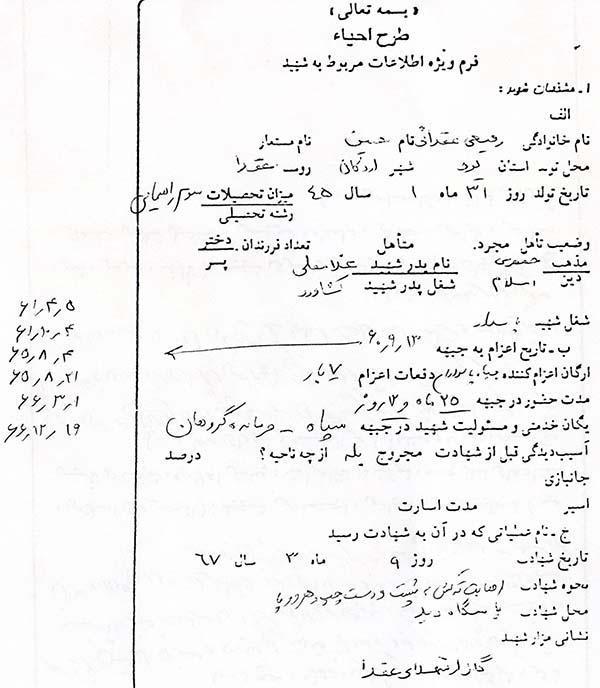 « بسمه تعالی »
طرح احیاء
فرم ویژه اطلاعات مربوط به شهید
۱ـ مشخصات شهید :
الف
نام خانوادگی رفیعی عقدائی نام حسین نام مستعار
محل تولد استان یزد شهر اردکان روستا عقدا
تاریخ تولد روز ۳۱ ماه ۱ سال ۴۵ میزان تحصیلات سوم راهنمایی
رشته تحصیلی
وضعیت تأهل مجرد. متأهل تعداد فرزندان. دختر
پسر
مذهب نام پدر شهید غلامعلی
دین اسلام شغل پدر شهید کشاورز
شغل شهید پاسدار
ب ـ تاریخ اعزام به جبهه ۶۰٫۹٫۱۳
۶۱٫۴٫۵
۶۱٫۱۰٫۴
۶۵٫۸٫۴
۶۵٫۸٫۲۱
۶۶٫۳٫۱
۶۶٫۱۲٫۱۹
ارگان اعزام کننده سپاه پاسداران دفعات اعزام ۷ بار
مدت حضور در جبهه ۲۵ ماه و ۱۲ روز
یگان خدمتی و مسئولیت شهید در جبهه سپاه ـ فرمانده گروهان
آسیب دیدگی قبل از شهادت مجروح بله از چه ناحیه ؟ درصد
جانبازی
اسیر مدت اسارت
ج ـ نام عملیاتی که در آن به شهادت رسید
تاریخ شهادت روز ۹ ماه ۳ سال ۶۷
نحوه شهادت اصابت ترکش به پشت و دست چپ و هر دو پا
محل شهادت پاسگاه زید
نشانی مزار شهید
گلزار شهدای عقدا